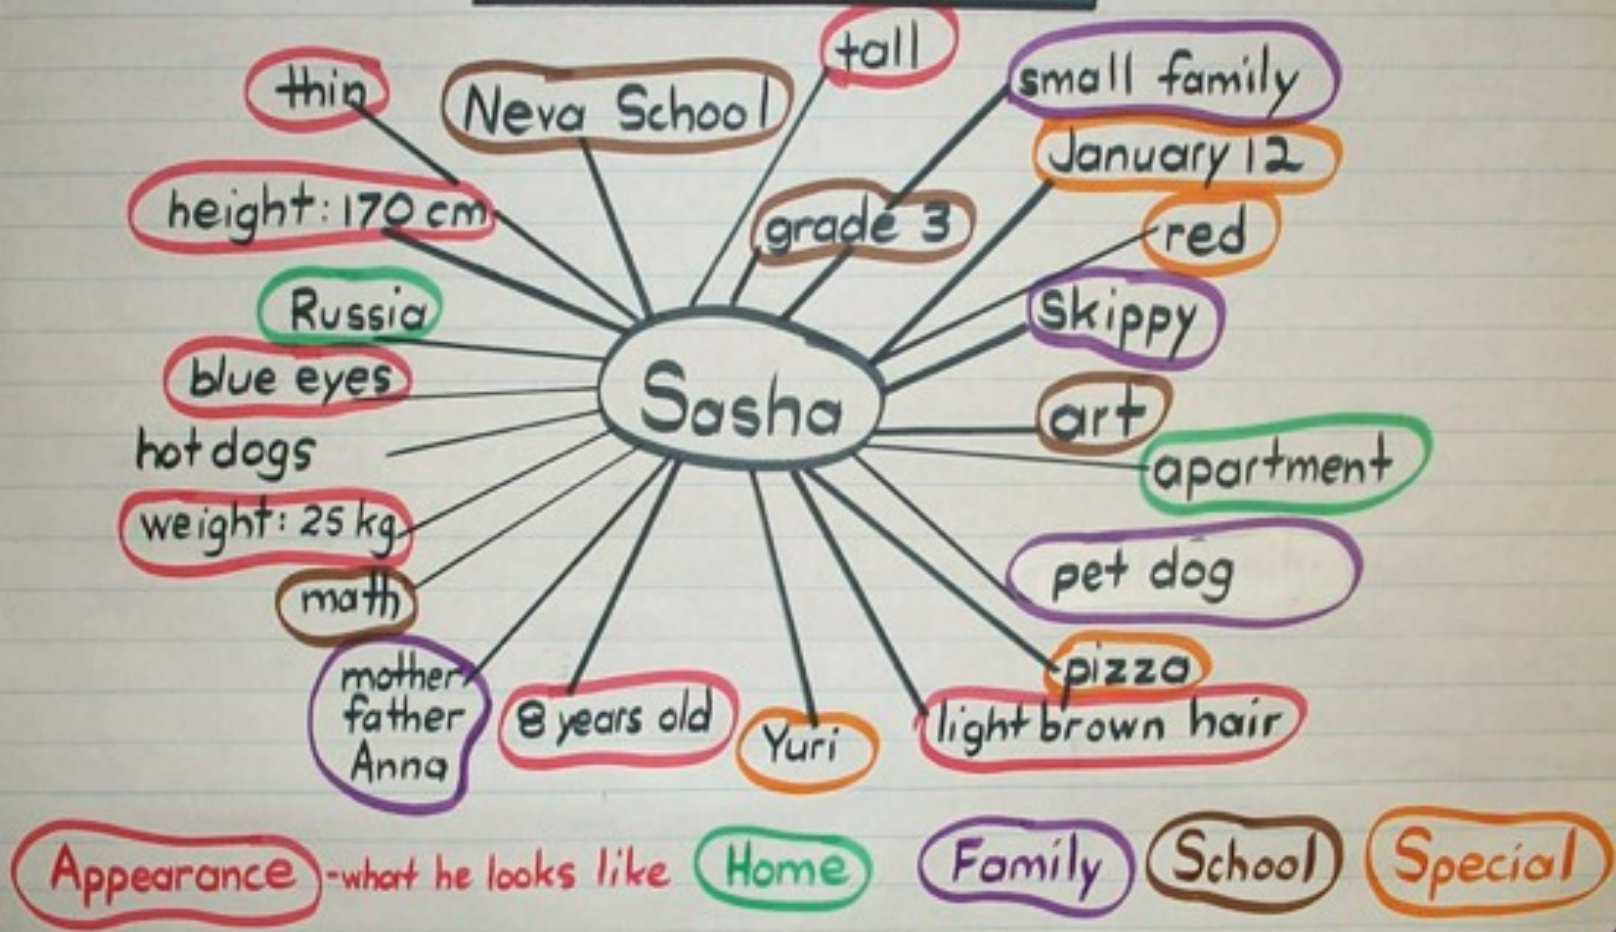 tall
thin
Neva School
small family
January 12
height: 170 cm
grade 3
red
Russia
Skippy
blue eyes
Sasha
art
hot dogs
apartment
weight: 25 kg
pet dog
math
mother
father
Anna
8 years old
Yuri
pizza
light brown hair
Appearance - what he looks like Home Family School Special